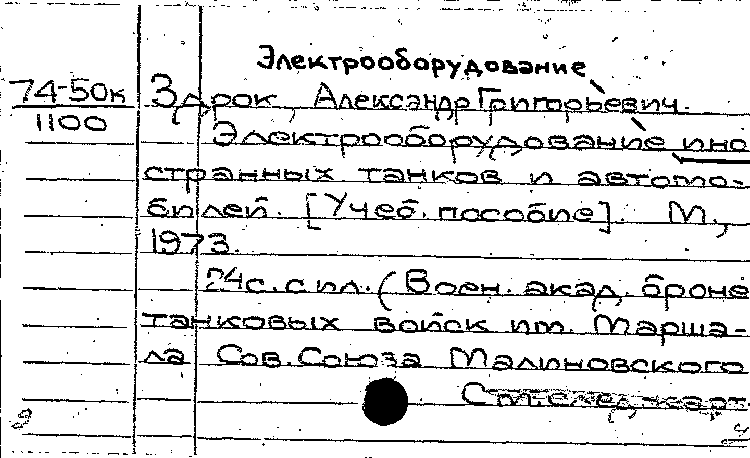 Электрооборудование
74-50к Здрок, Александр Григорьевич.
1100
Электрооборудование ино
странных танков и автомо-
билей. [Учеб. пособие]. М.,
1973.
24с. с ил. (Воен. акад. броне
танковых войск им. Марша-
ла Сов. Союза Малиновского
См. след. карт.